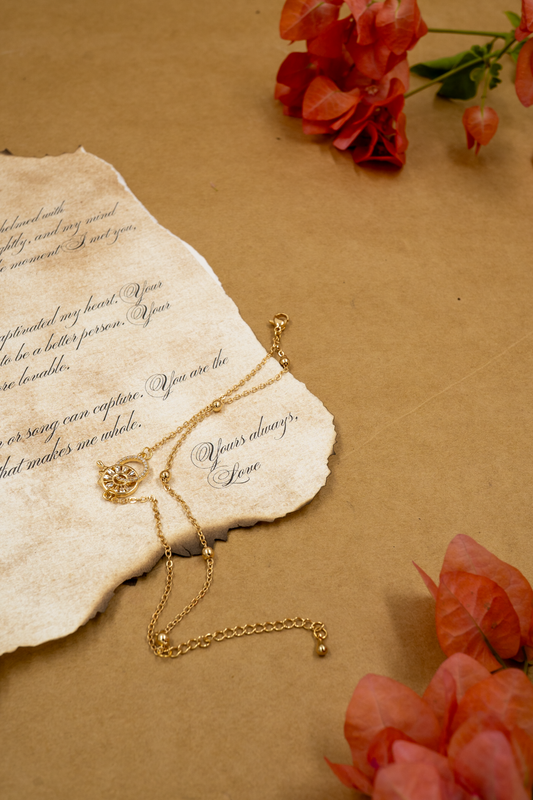 with
and my mind
moment I met you,
captivated my heart. Your
to be a better person. Your
lovable.
or song can capture. You are the
that makes me whole.
Yours always,
Love